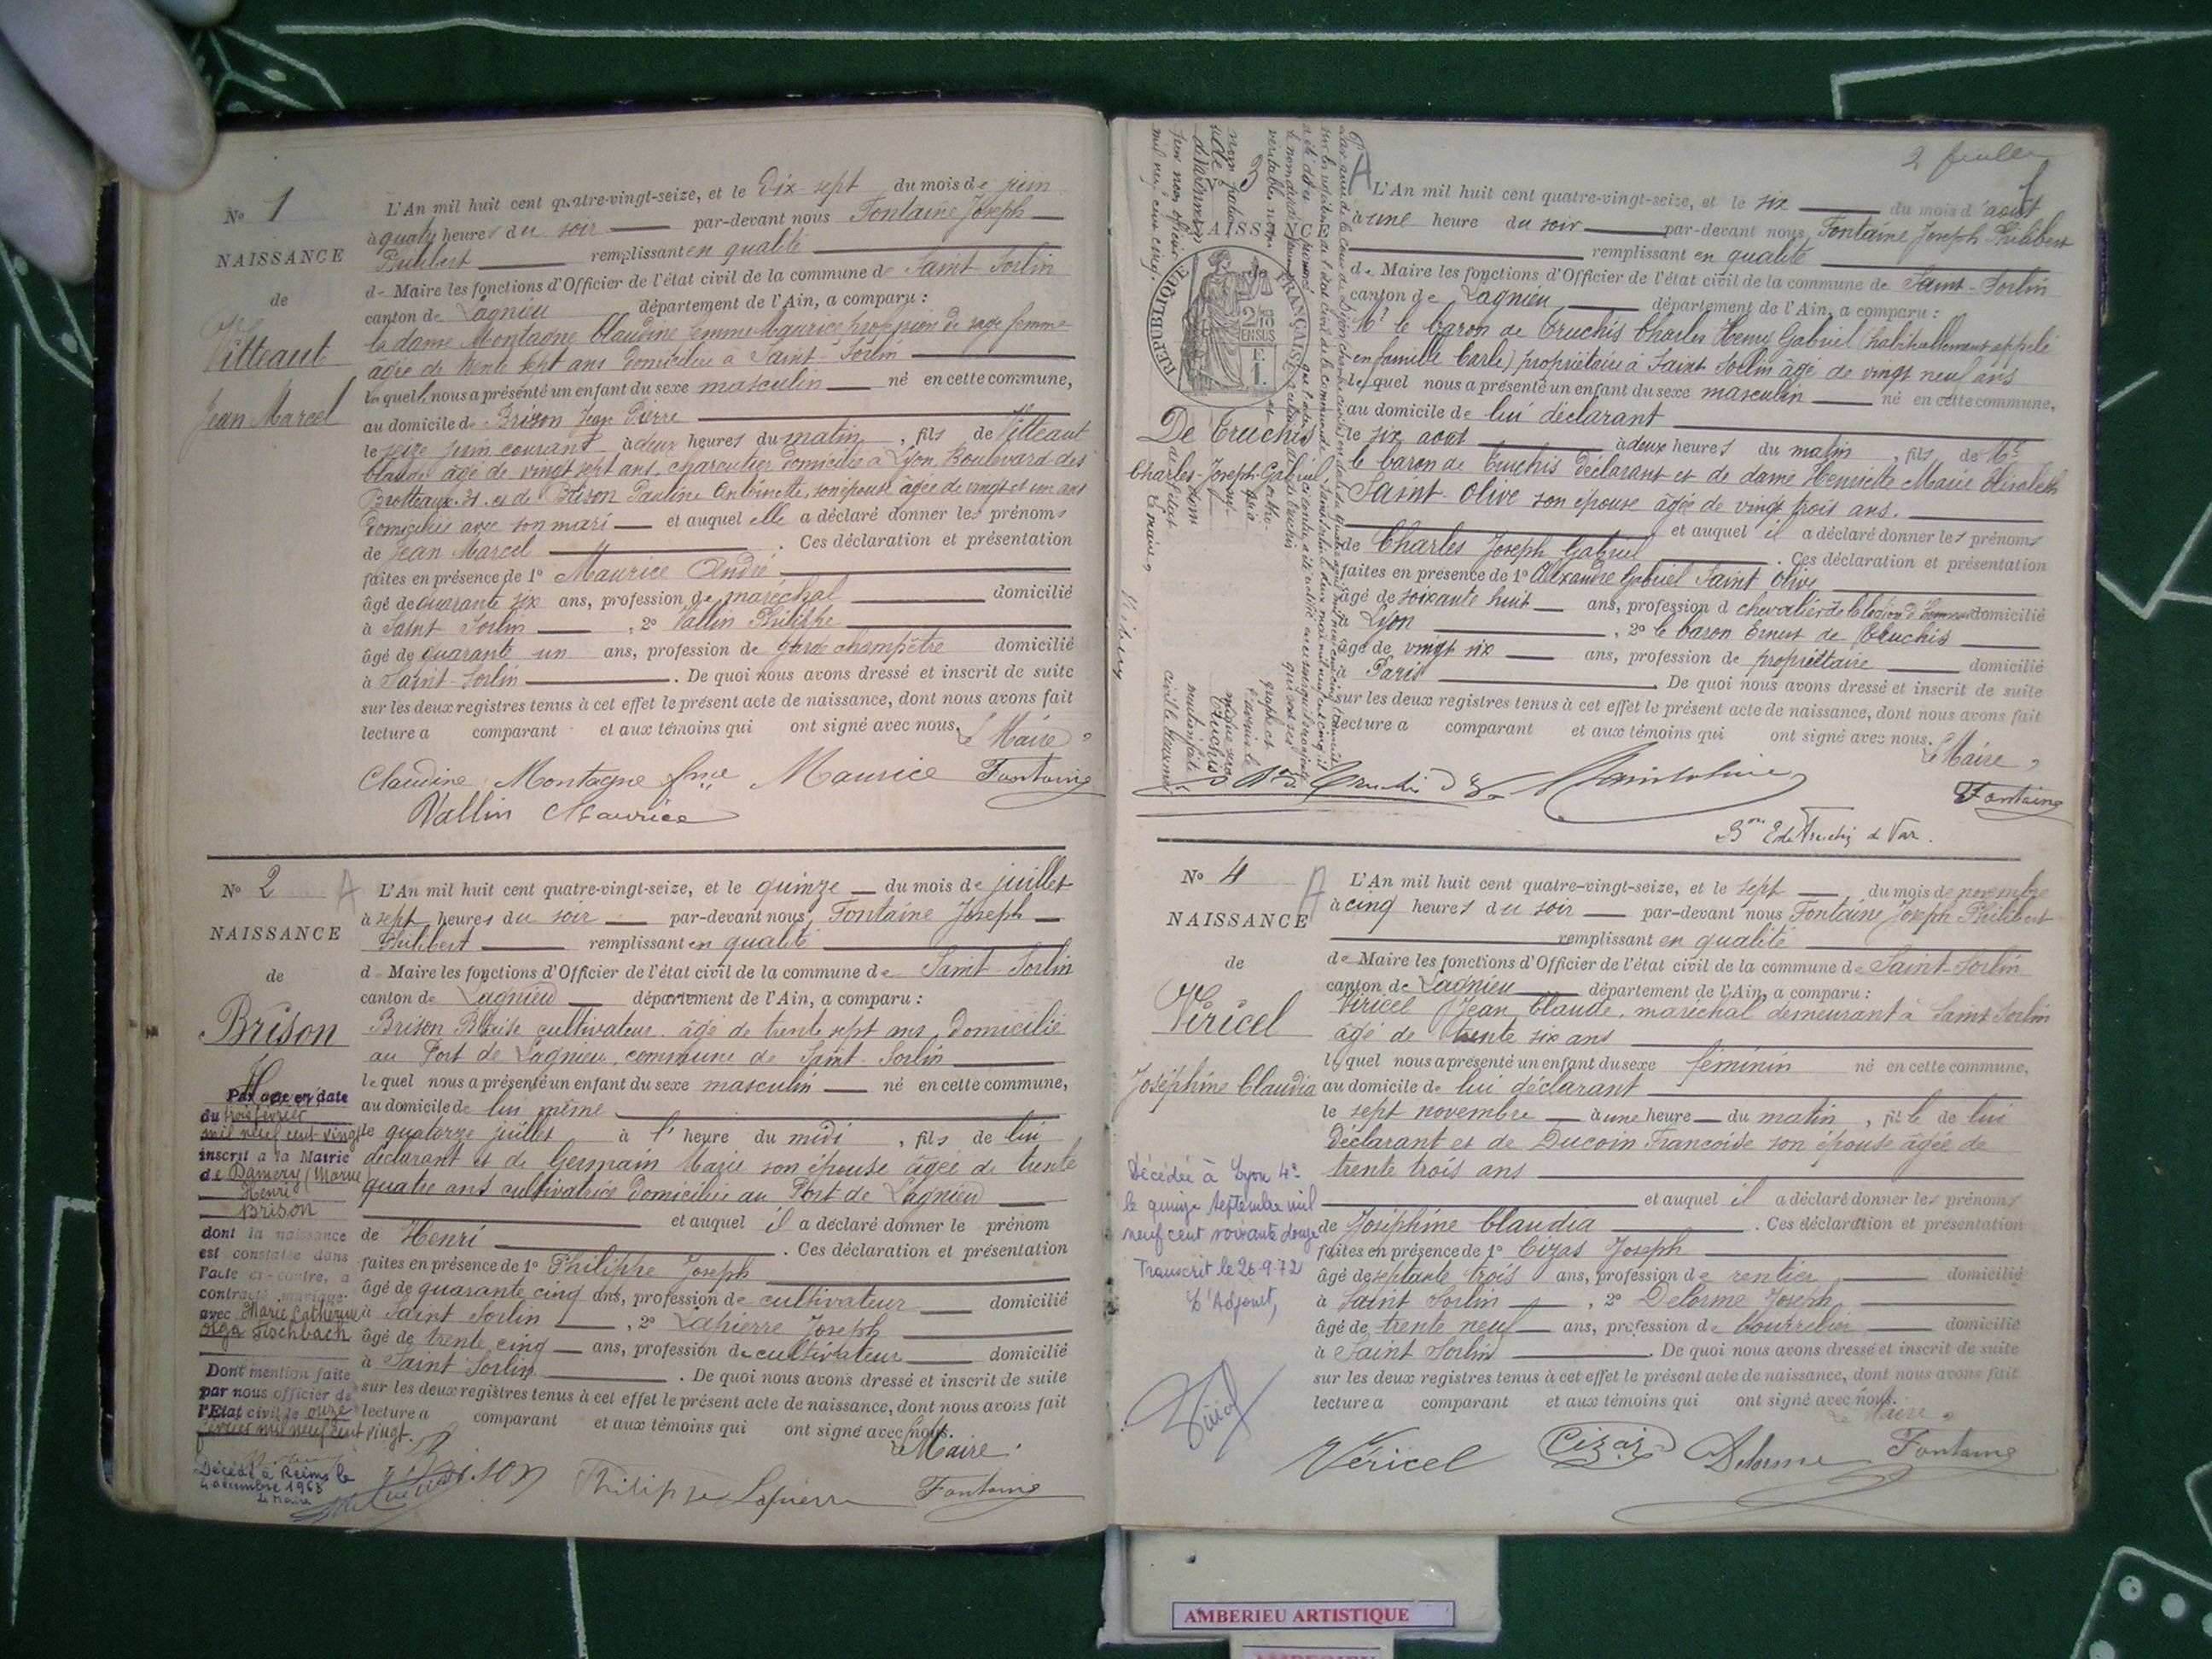 No 1
NAISSANCE
de
Vitteaut
Jean Marcel
L'An mil huit cent quatre-vingt-seize, et le Dix-sept du mois de juin
à quatre heures du soir par-devant nous Fontaine Joseph
Philibert remplissant en qualité
de Maire les fonctions d'Officier de l'état civil de la commune de Saint-Sorlin
canton de Lagnieu département de l'Ain, a comparu :
la dame Montagne Claudine femme Maurice profession de sage femme
âgée de trente sept ans domiciliée à Saint-Sorlin
laquelle nous a présenté un enfant du sexe masculin né en cette commune,
au domicile de Brison Jean Pierre
le seize juin courant à deux heures du matin, fils de Vitteaut
Claude âgé de vingt sept ans, charcutier domicilié à Lyon, Boulevard des
Brotteaux. 31. et de Brison Pauline Antoinette, son épouse âgée de vingt et un ans
domiciliée avec son mari et auquel elle a déclaré donner les prénoms
de Jean Marcel . Ces déclaration et présentation
faites en présence de 1° Maurice André
âgé de quarante six ans, profession de maréchal domicilié
à Saint Sorlin , 2° Vallin Philippe
âgé de quarante un ans, profession de garde champêtre domicilié
à Saint-Sorlin . De quoi nous avons dressé et inscrit de suite
sur les deux registres tenus à cet effet le présent acte de naissance, dont nous avons fait
lecture a comparant et aux témoins qui ont signé avec nous.
Le Maire
Claudine Montagne fme Maurice Fontaine
Vallin Maurice
No 2 A
NAISSANCE
de
Brison
Henri
L'An mil huit cent quatre-vingt-seize, et le quinze du mois de juillet
à sept heures du soir par-devant nous, Fontaine Joseph
Philibert remplissant en qualité
de Maire les fonctions d'Officier de l'état civil de la commune de Saint-Sorlin
canton de Lagnieu département de l'Ain, a comparu :
Brison Blaise cultivateur âgé de trente sept ans, domicilié
au Port de Lagnieu, commune de Saint-Sorlin
lequel nous a présenté un enfant du sexe masculin né en cette commune,
au domicile de lui même
le quatorze juillet à l' heure du midi , fils de lui
déclarant et de Germain Marie son épouse âgée de trente
quatre ans cultivatrice domiciliée au Port de Lagnieu
et auquel il a déclaré donner le prénom
de Henri . Ces déclaration et présentation
faites en présence de 1° Philippe Joseph
âgé de quarante cinq ans, profession de cultivateur domicilié
à Saint Sorlin , 2° Lapierre Joseph
âgé de trente cinq ans, profession de cultivateur domicilié
à Saint Sorlin . De quoi nous avons dressé et inscrit de suite
sur les deux registres tenus à cet effet le présent acte de naissance, dont nous avons fait
lecture a comparant et aux témoins qui ont signé avec nous.
Le Maire
Brison Philippe Lapierre Fontaine
Par acte en date
du trois février
mil neuf cent vingt
inscrit à la Mairie
de Damery (Marne
Henri
Brison
dont la naissance
est constatée dans
l'acte ci-contre, a
contracté mariage
avec Marie Catherine
Olga Fischbach
Dont mention faite
par nous officier de
l'Etat civil le onze
février mil neuf cent vingt.
Décédé à Reims le
4 décembre 1968
Le Maire
2 feuille
3
NAISSANCE
REPUBLIQUE FRANÇAISE
De Truchis
Charles-Joseph-Gabriel
A
L'An mil huit cent quatre-vingt-seize, et le six du mois d'août
à une heure du soir par-devant nous, Fontaine Joseph Philibert
remplissant en qualité
de Maire les fonctions d'Officier de l'état civil de la commune de Saint-Sorlin
canton de Lagnieu département de l'Ain, a comparu :
Mr le baron de Truchis Charles Henry Gabriel (habituellement appelé
en famille Carle) propriétaire à Saint Sorlin âgé de vingt neuf ans
lequel nous a présenté un enfant du sexe masculin né en cette commune,
au domicile de lui déclarant
le six aout à deux heures du matin , fils de Mr
le baron de Truchis déclarant et de dame Henriette Marie Elisabeth
Saint-Olive son épouse âgée de vingt trois ans.
et auquel il a déclaré donner les prénoms
de Charles Joseph Gabriel . Ces déclaration et présentation
faites en présence de 1° Alexandre Gabriel Saint Olive
âgé de soixante huit ans, profession d chevalier de la légion d'honneur domicilié
à Lyon , 2° le baron Ernest de Truchis
âgé de vingt six ans, profession de propriétaire domicilié
à Paris . De quoi nous avons dressé et inscrit de suite
sur les deux registres tenus à cet effet le présent acte de naissance, dont nous avons fait
lecture a comparant et aux témoins qui ont signé avec nous.
Le Maire
Fontaine
Bon E de Truchis de Var.
No 4 A
NAISSANCE
de
Véricel
Joséphine Claudia
L'An mil huit cent quatre-vingt-seize, et le sept du mois de novembre
à cinq heures du soir par-devant nous Fontaine Joseph Philibert
remplissant en qualité
de Maire les fonctions d'Officier de l'état civil de la commune de Saint-Sorlin
canton de Lagnieu département de l'Ain, a comparu :
Véricel Jean Claude, maréchal demeurant à Saint Sorlin
âgé de trente six ans
lequel nous a présenté un enfant du sexe féminin né en cette commune,
au domicile de lui déclarant
le sept novembre à une heure du matin , fille de lui
déclarant et de Ducoin Francoise son épouse âgée de
trente trois ans
et auquel il a déclaré donner les prénoms
de Joséphine Claudia . Ces déclaration et présentation
faites en présence de 1° Cizas Joseph
âgé de septante trois ans, profession de rentier domicilié
à Saint Sorlin , 2° Delorme Joseph
âgé de trente neuf ans, profession de bourrelier domicilié
à Saint Sorlin . De quoi nous avons dressé et inscrit de suite
sur les deux registres tenus à cet effet le présent acte de naissance, dont nous avons fait
lecture a comparant et aux témoins qui ont signé avec nous.
Le Maire
Véricel Cizas Delorme Fontaine
Décédée à Lyon 4e
le quinze septembre mil
neuf cent soixante douze
Transcrit le 26-9-72
L'Adjoint,
AMBERIEU ARTISTIQUE
AMBERIEU